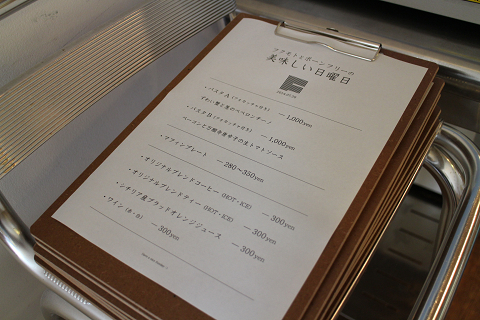 美味しい日曜日
・パスタA — 1,000yen
・パスタB — 1,000yen
ベーコンと万願寺唐辛子の生トマトソース
・マフィンプレート — 280〜350yen
・オリジナルブレンドコーヒー (HOT・ICE) — 300yen
・オリジナルブレンドティー (HOT・ICE) — 300yen
・シチリア産ブラッドオレンジジュース — 300yen
・ワイン (赤・白) — 300yen